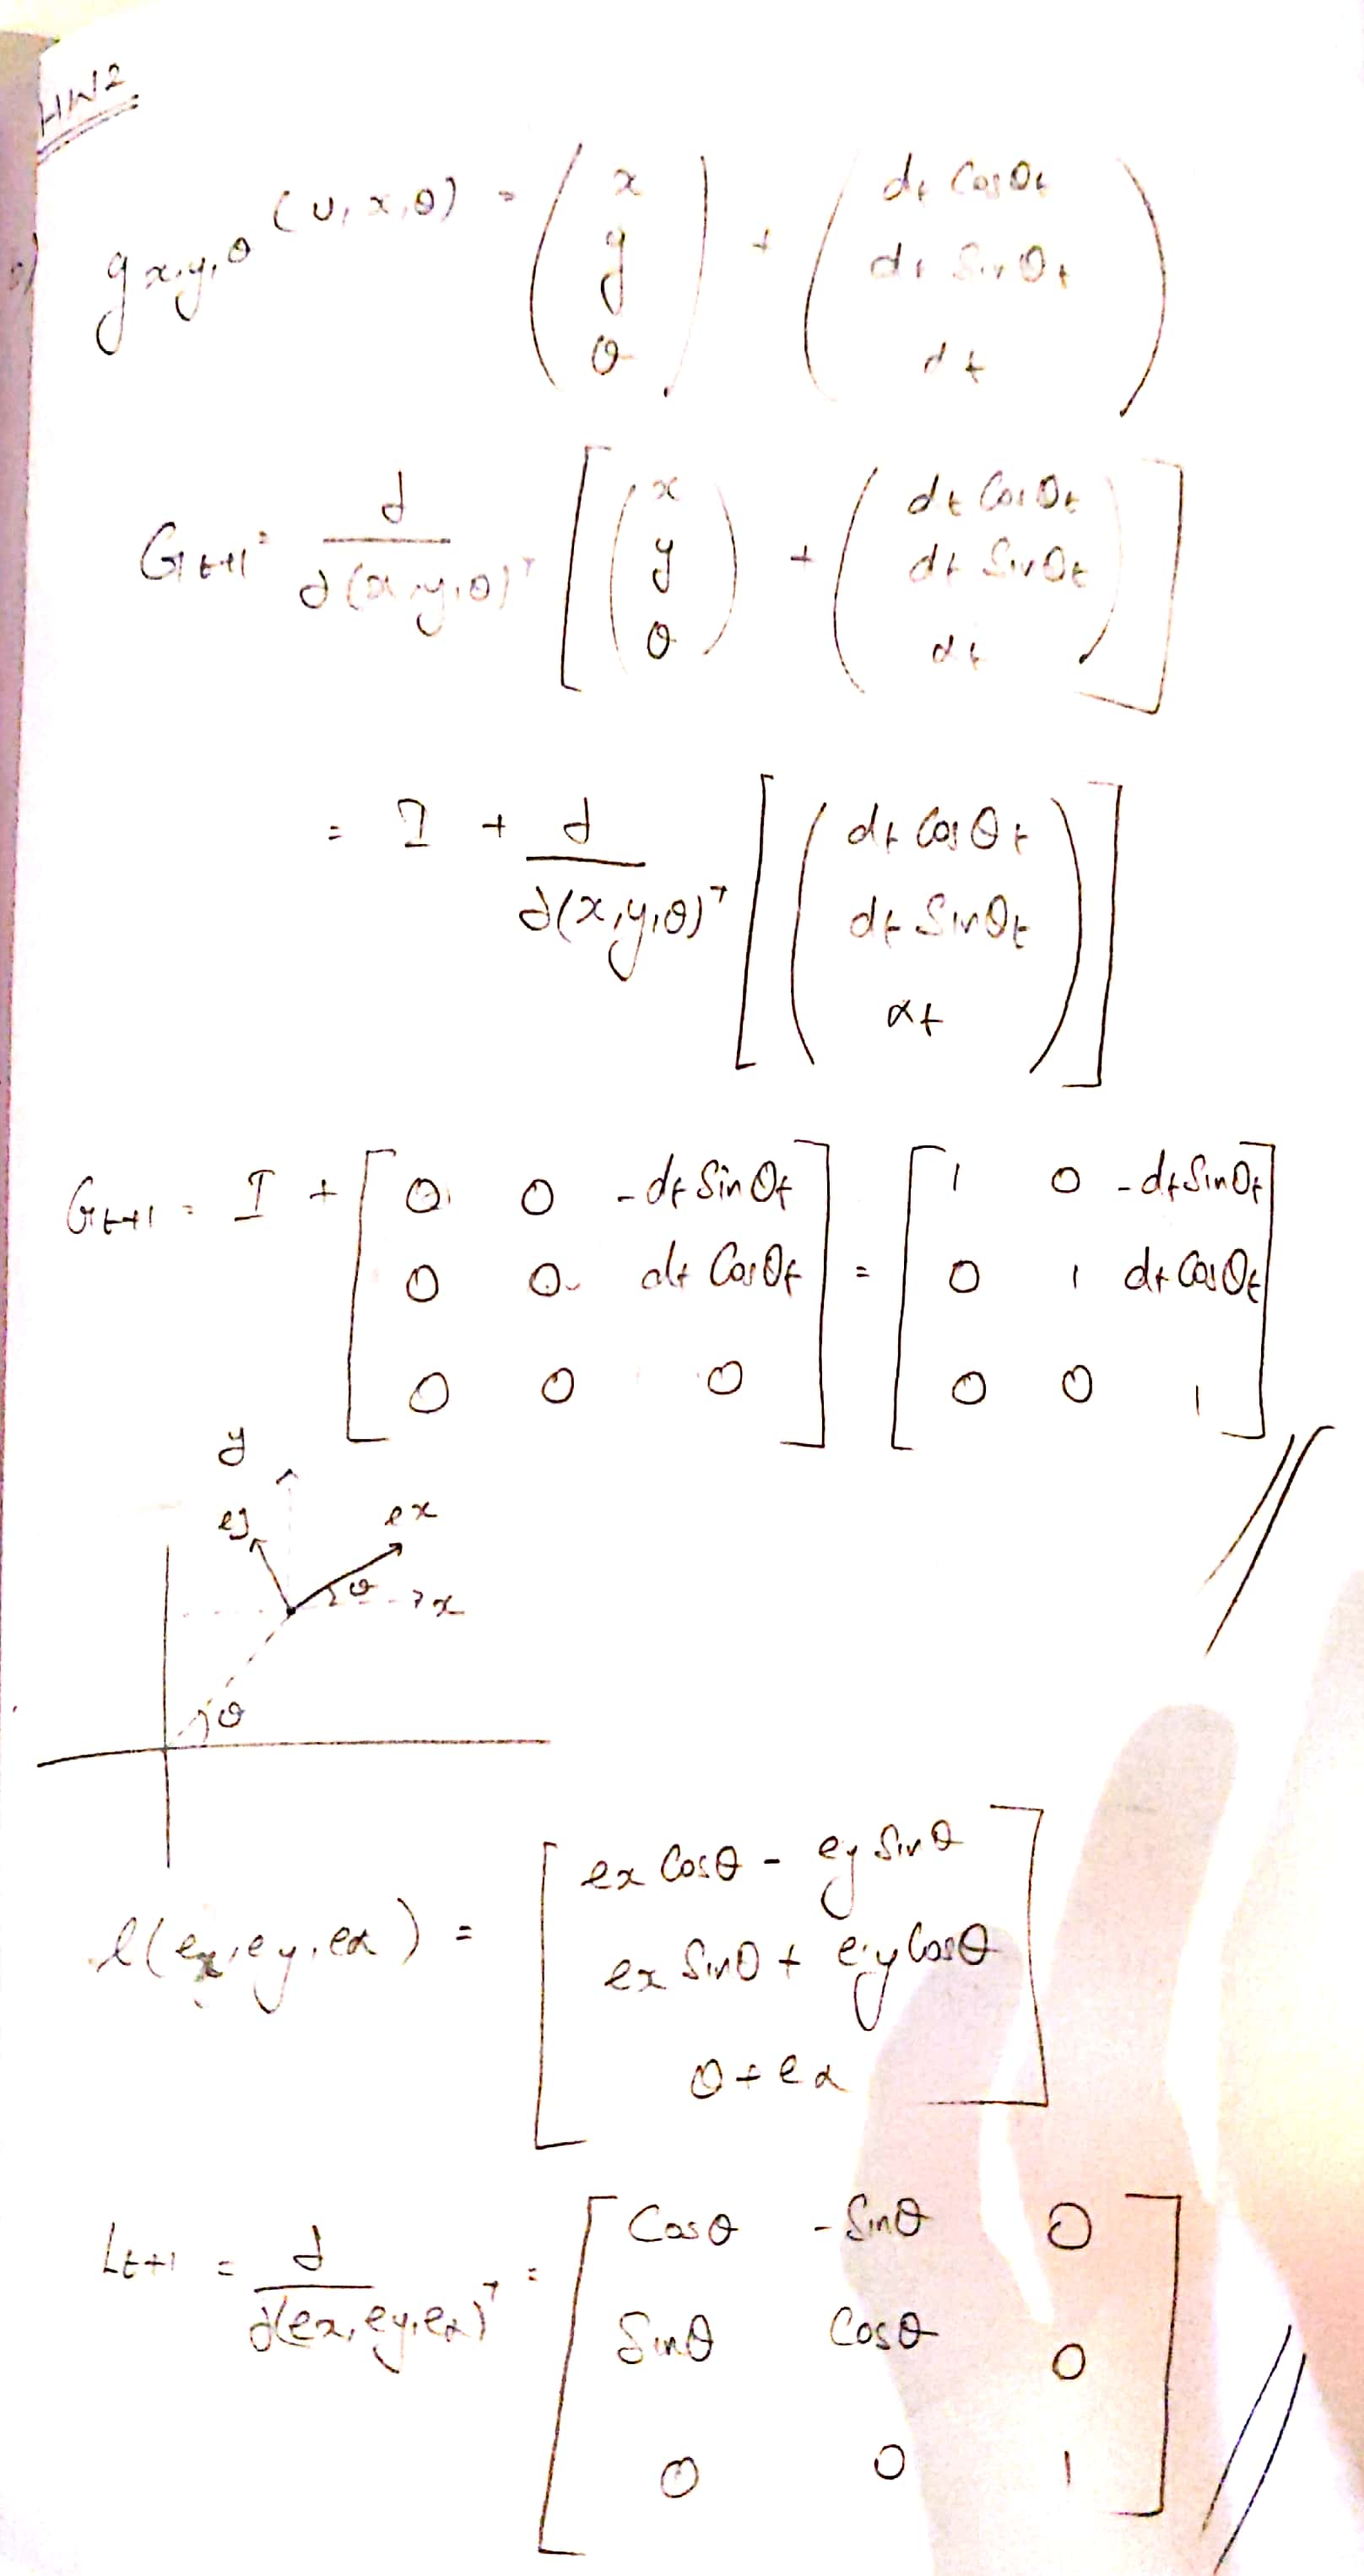 HW2
g x,y,θ (u, x, θ) = ( x y θ ) + ( dt Cosθt dt Sinθt αt )
Gt+1 = ∂/∂(x,y,θ)ᵀ [ ( x y θ ) + ( dt Cosθt dt Sinθt αt ) ]
= I + ∂/∂(x,y,θ)ᵀ [ ( dt Cosθt dt Sinθt αt ) ]
Gt+1 = I + [ 0 0 -dt Sinθt 0 0 dt Cosθt 0 0 0 ] = [ 1 0 -dt Sinθt 0 1 dt Cosθt 0 0 1 ]
y
ey ex
θ x
θ
l(ex, ey, eα) = [ ex Cosθ - ey Sinθ ex Sinθ + ey Cosθ θ + eα ]
Lt+1 = ∂/∂(ex, ey, eα)ᵀ = [ Cosθ -Sinθ 0 Sinθ Cosθ 0 0 0 1 ]